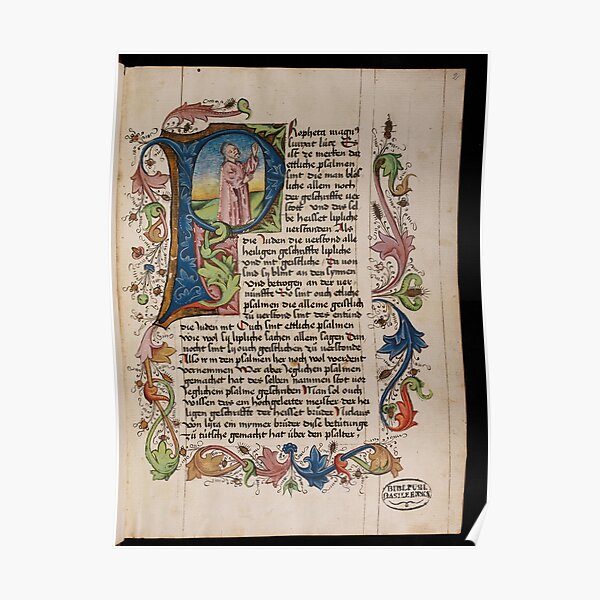 Propheta magnus
surrexit Luce Es
ist ze mercken daz
ettliche psalmen
sint die man blos
liche allein noch
der geschrifft ver
stott Und das sel
be heisset lipliche
verstanden Als
die Juden die verstond alle
heiligen geschrifft lipliche
und nit geistliche Da von
sind sÿ blint an den synnen
Und betrogen an der ver
nunfft So sint ouch etliche
psalmen die alleine geistlich
zu verstond sint des entund
die Juden nit Ouch sint ettliche psalmen
wie wol sÿ lipliche sachen allein sagen Dan
nocht sint sÿ ouch geistlichen zu verstonde
Also in den psalmen her noch wol werdent
vernemmen Wer aber ieglichen psalmen
gemachet hat des selben nammen stot vor
ieglichem psalme geschriben Man sol ouch
wissen das ein hochgeletter meister der hei
ligen geschrifft der heisset brüder Niclaus
von lira ein mynner brüder dise betütunge
zü tütsche gemacht hat über den psalter
BIBL. PUBL.
BASILEENSIS